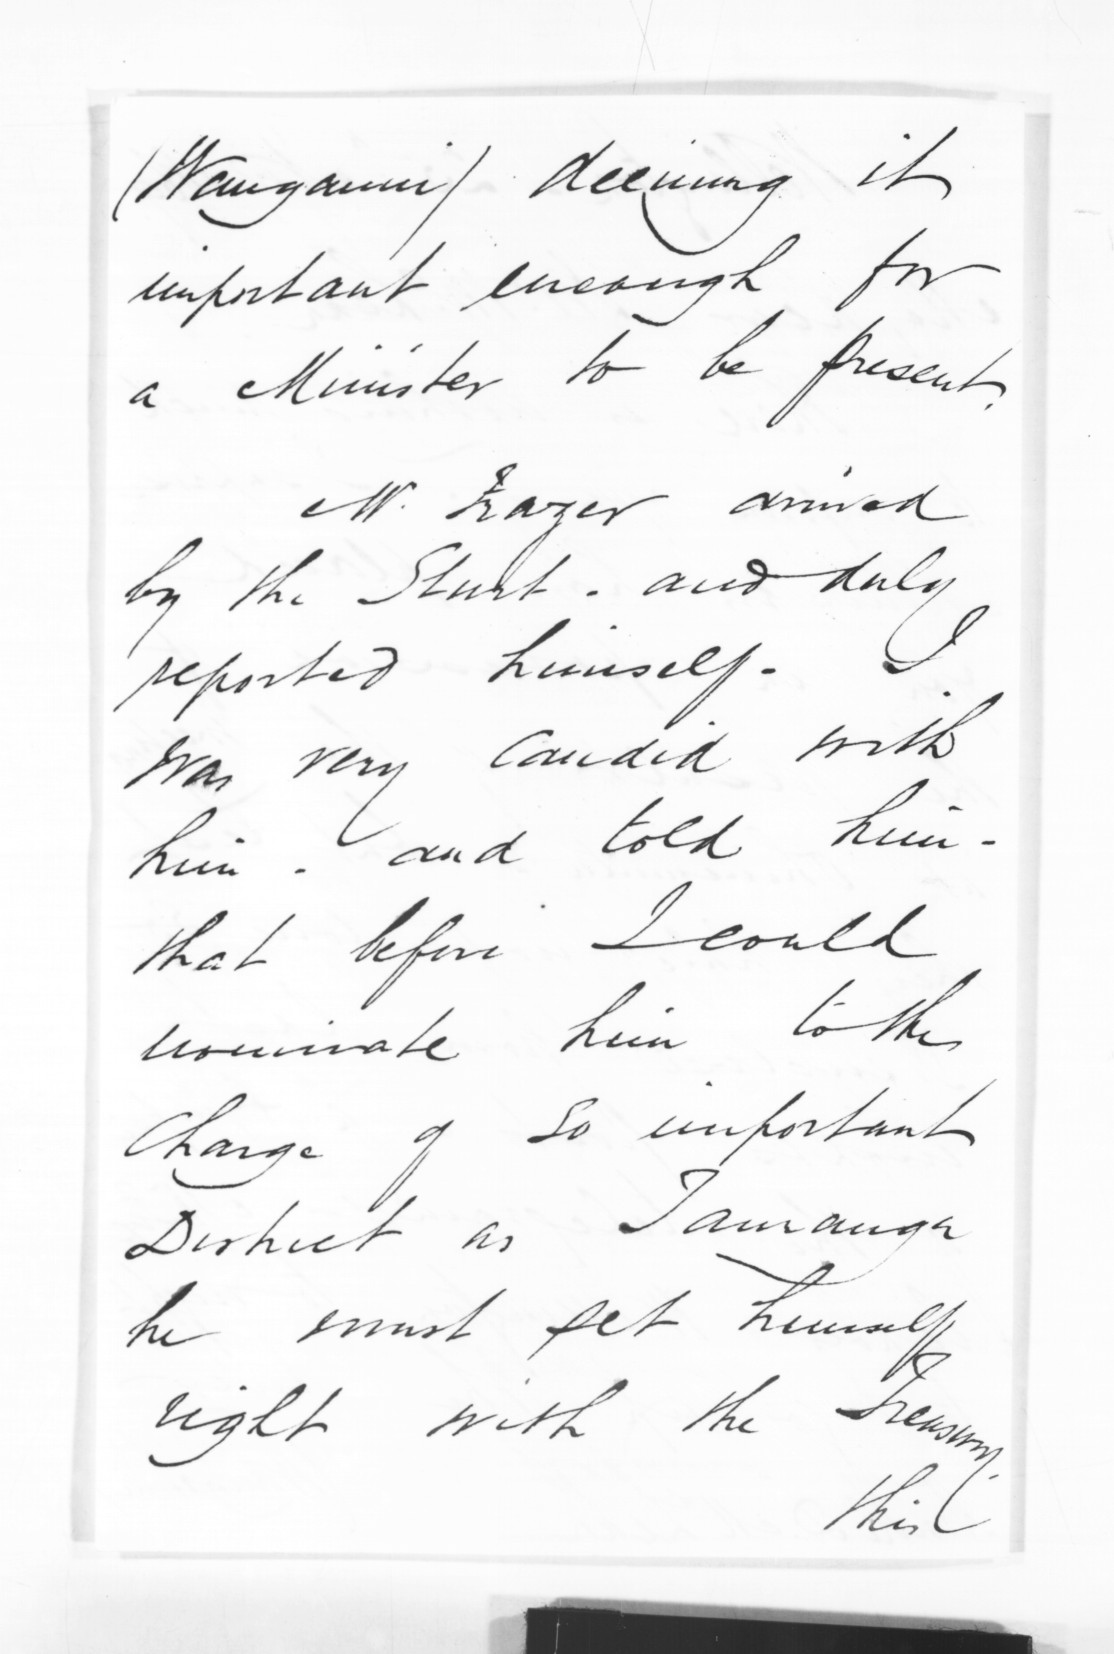 (Wanganui) deeming it
important enough for
a Minister to be present.
Mr. Frazer arrived
by the Sturt. and duly
reported himself. I
was very candid with
him. and told him.
that before I could
nominate him to the
charge of so important
District as Tauranga
he must set himself
right with the Treasury.
this